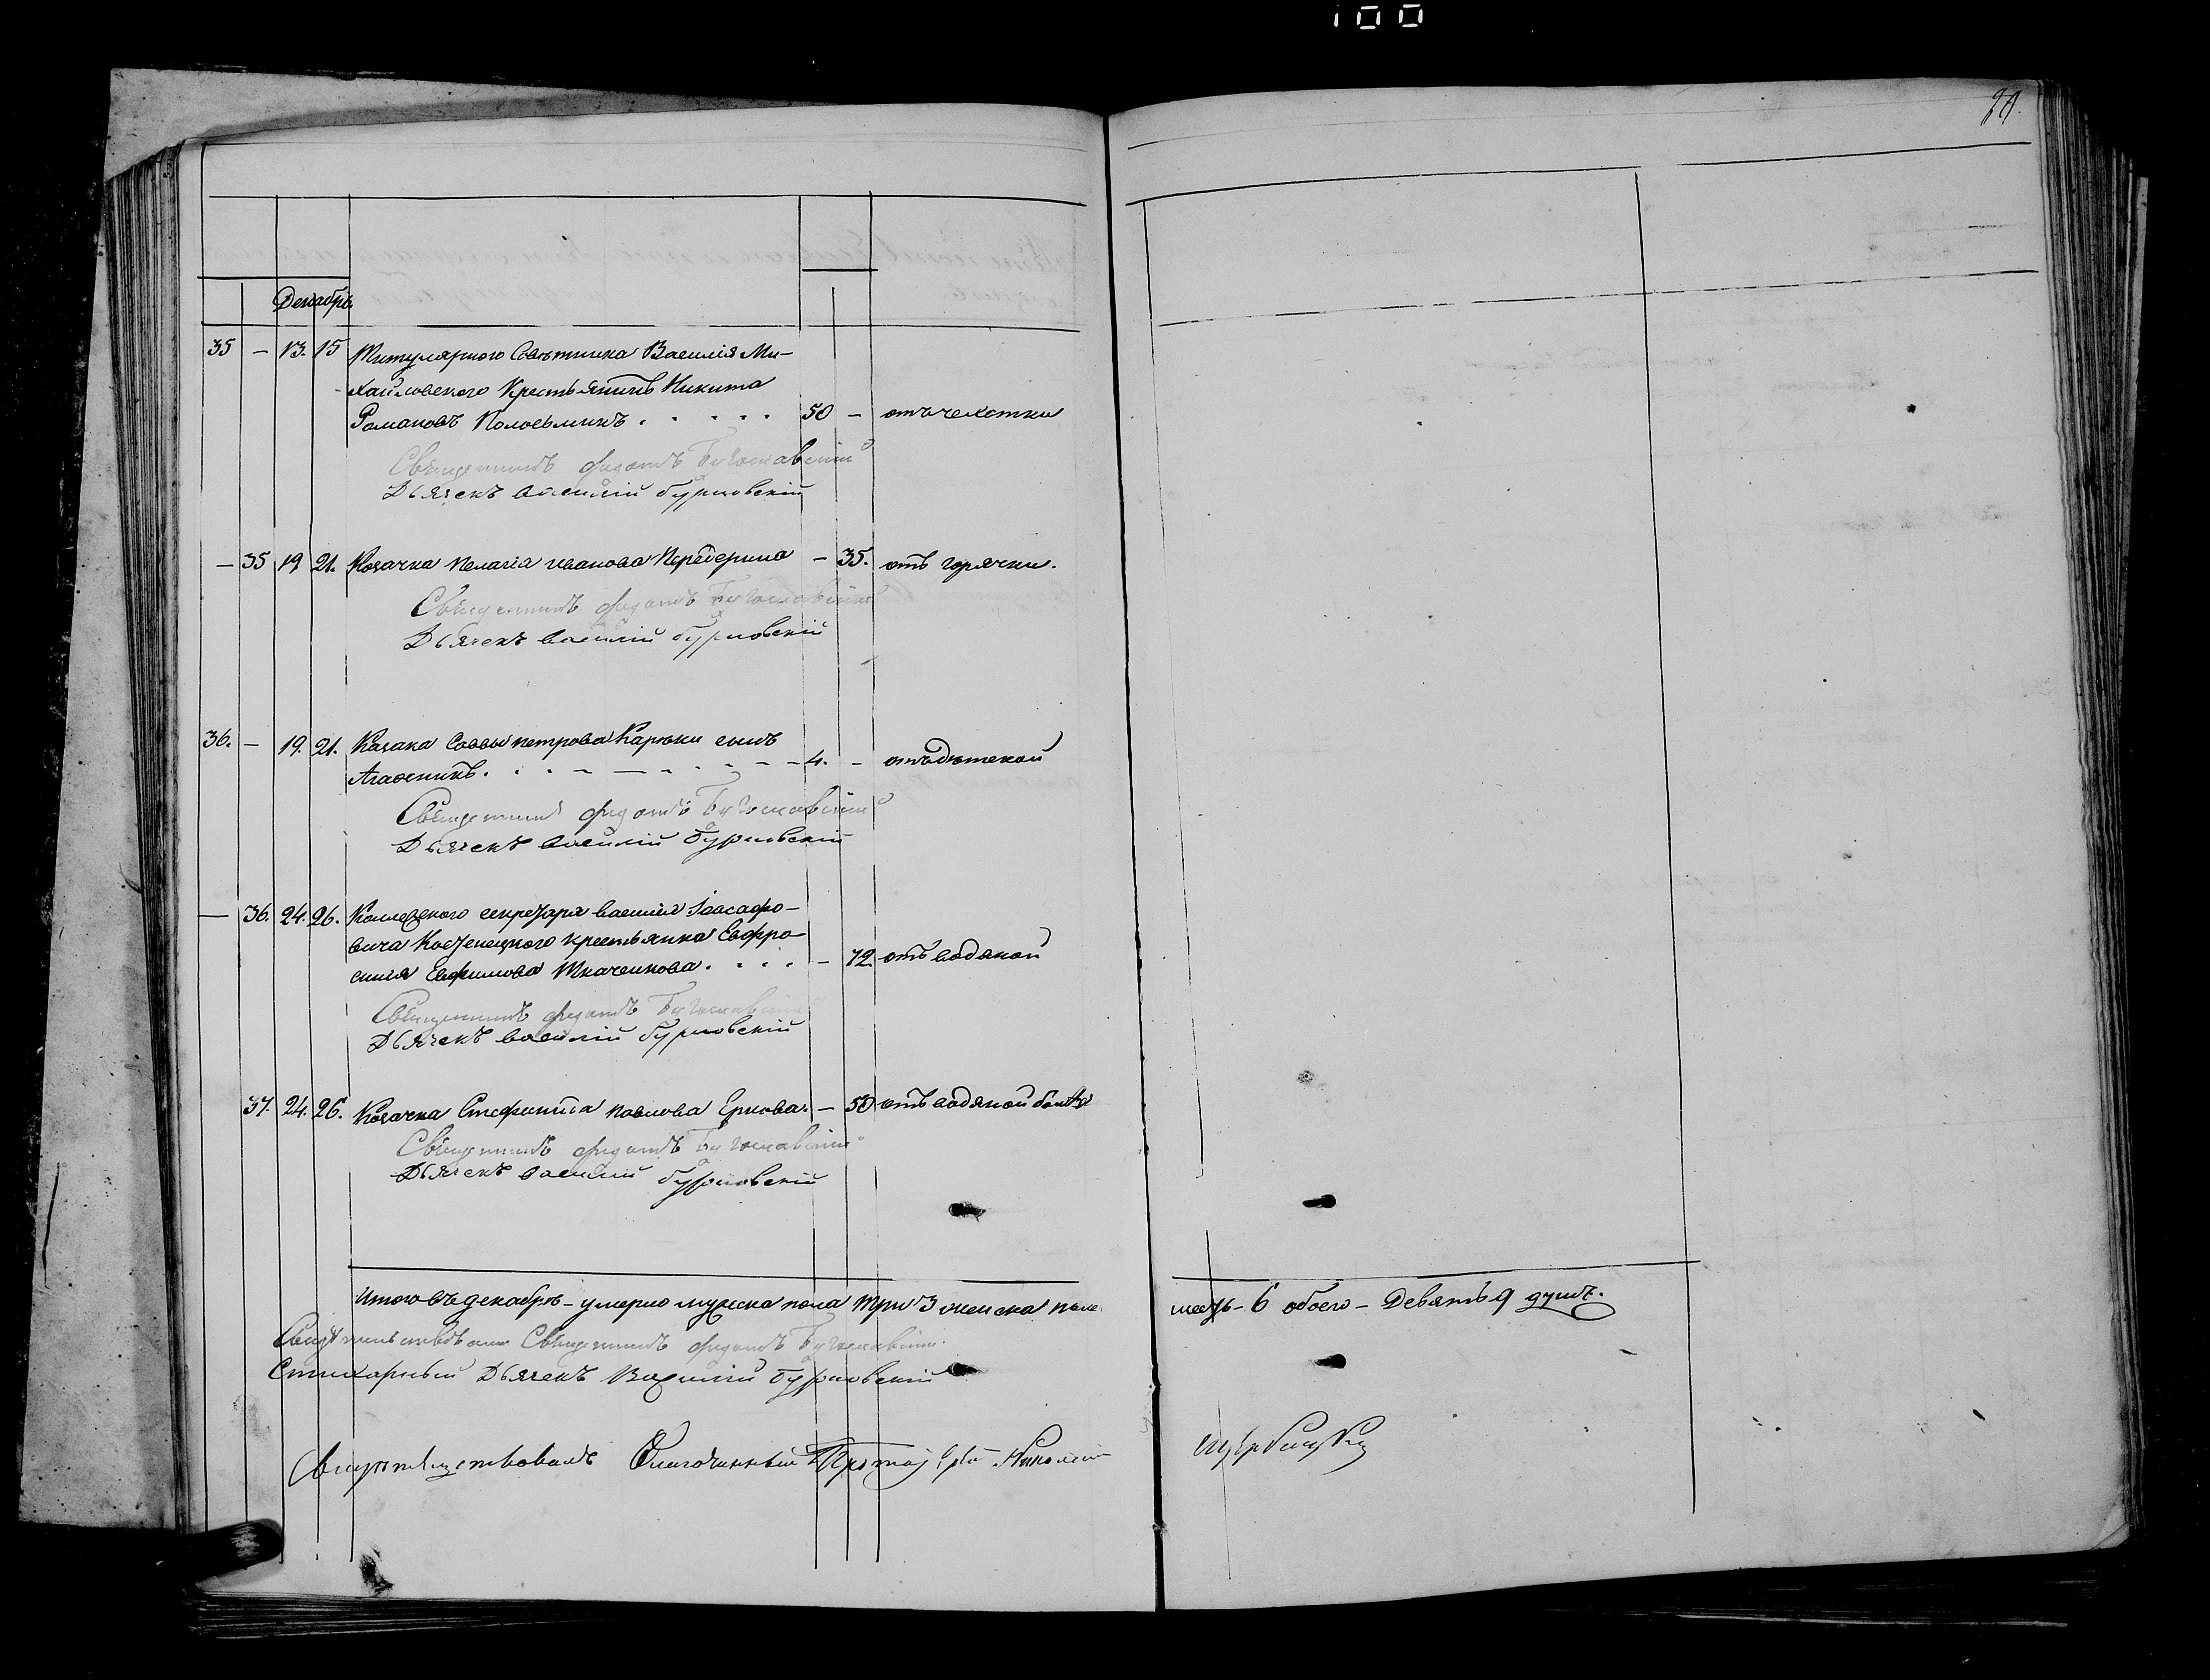 100
29.
Декабрь
35 – 13. 15 Титулярного Совѣтника Василія Ми-
хайловского Крестьянинъ Никита
Романовъ Колосьникъ . . . . . 50 – отъ чехотки
Священникъ Федотъ Богославскій
Дьячекъ Василій Бурновскій
– 35 19 21. Козачка Пелагія Иванова Передерина – 35. отъ горячки.
Священникъ Федотъ Богославскій
Дьячекъ Василій Бурновскій
36. – 19. 21. Козака Саввы Петрова Карюки сынъ
Агафоникъ. . . – – – . . – – – 4. – отъ дѣтской
Священникъ Федотъ Богославскій
Дьячекъ Василій Бурновскій
– 36. 24. 26. Коллежского секретаря Василія Іоасафо-
вича Костенецкого крестьянка Евфро-
синія Евфимова Ткаченкова . . . . – 72 отъ водяной
Священникъ Федотъ Богославскій
Дьячекъ Василій Бурновскій
37. 24. 26. Козачка Стефанида Павлова Еркова. – 50 отъ водяной
Священникъ Федотъ Богославскій
Дьячекъ Василій Бурновскій
Итого въ декабрѣ – умерло мужска пола три 3 женска пола шесть – 6 обоего – Девять 9 душъ.
Священникъ Федотъ Богославскій
Стихарный Дьячекъ Василій Бурновскій
Свидѣтельствовалъ Благочинный Протоіерей Николай